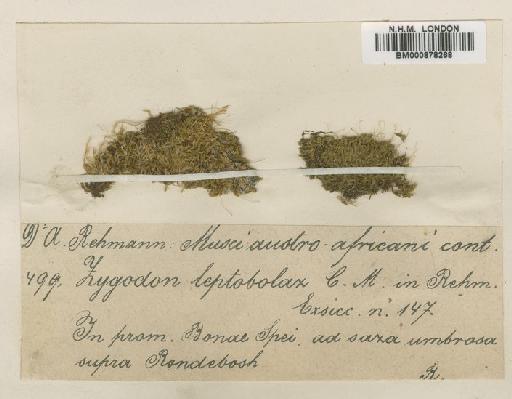 N.H.M. LONDON
BM000878268
Dr A. Rehmann. Musci austro-africani cont.
499. Zygodon leptobolax C. M. in Rehm.
Exsicc. n. 147
In prom. Bonae Spei, ad saxa umbrosa
supra Rondebosh
R.